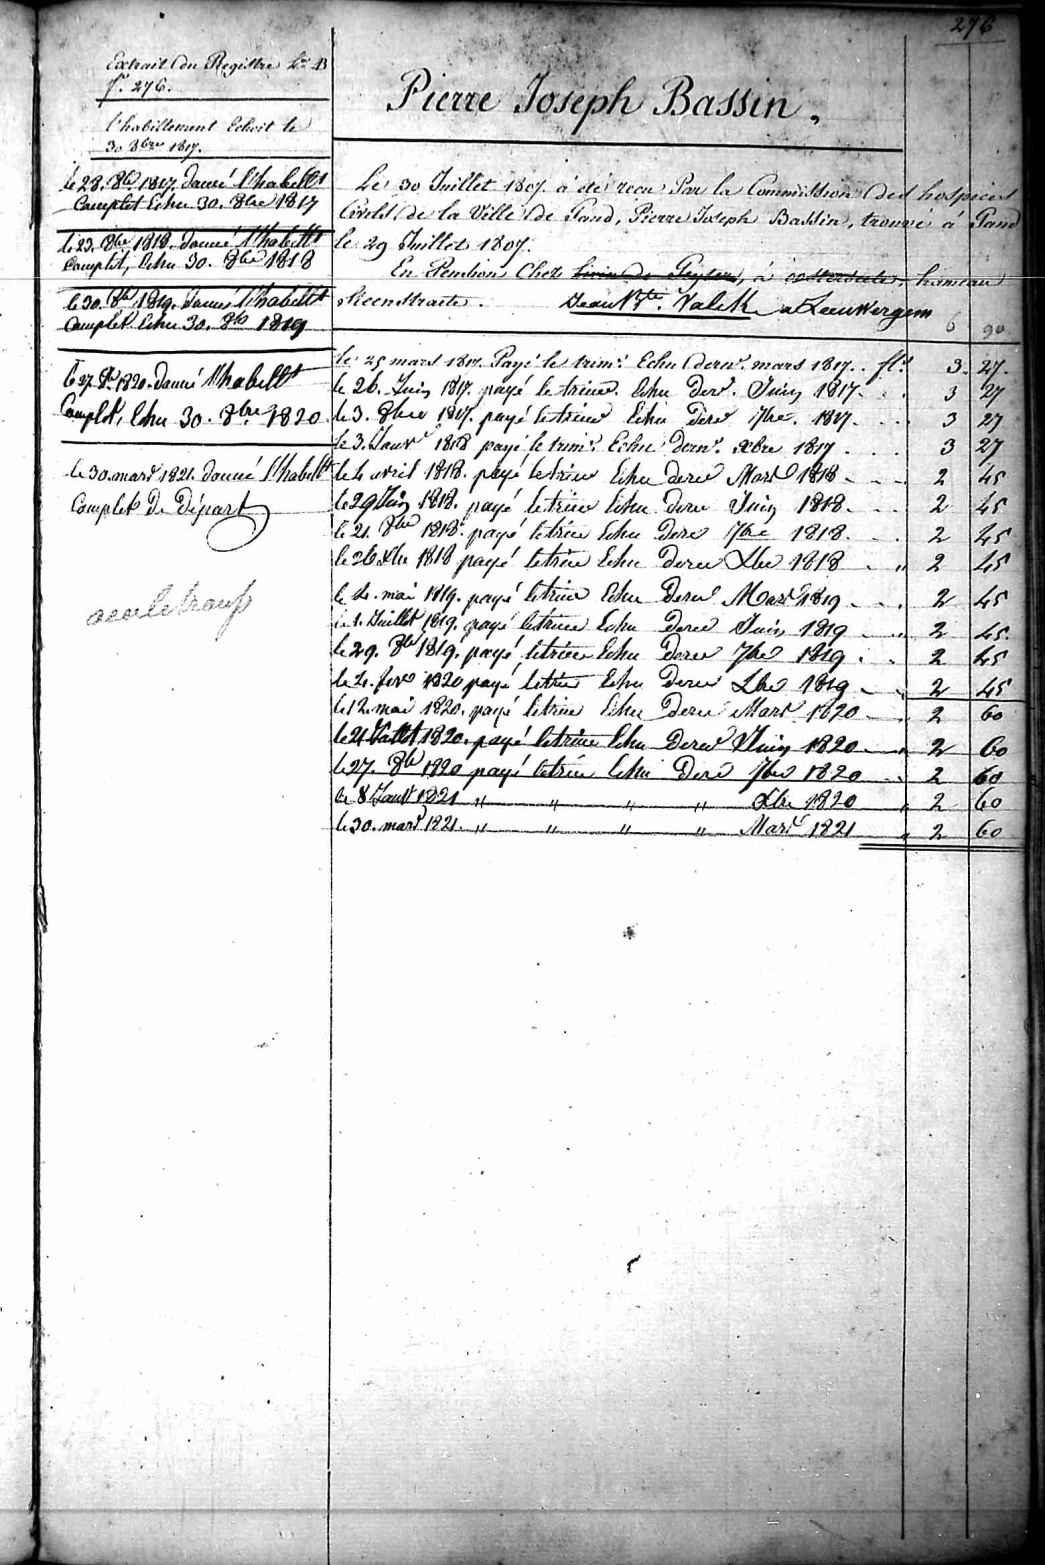 276
Extrait du Registre L.re B
f.o 276.
l'habillement Echoit le
30 8bre 1817.
le 28. 8bre 1817. donné l'habillt
Complet Echu 30. 8bre 1817
le 23. 8bre 1818. donné l'habillt
Complet, Echu 30. 8bre 1818
le 30. 8bre 1819. donné l'habillt
Complet Echu 30. 8bre 1819
le 27. 8bre 1820. donné l'habillt
Complet, Echu 30. 8bre 1820
le 30. mars 1821. donné l'habillt
Complet De Départ
Pierre Joseph Bassin,
Le 30 Juillet 1807. à été recu Par la Commission des hospices
Civils de la Ville de Gand, Pierre Joseph Bassin, trouvé à Gand
le 29 Juillet 1807.
En Pension Chez Livin De, à, hameau
Jean Bte. Valck a Leeuwergem
6 90
le 25 mars 1817. Payé le trim.e Echu dern.r mars 1817. fl.s 3. 27.
le 26. Juin 1817. payé le trim.e Echu der.r Juin 1817. 3 27
le 3. 8bre 1817. payé le trim.e Echu der.r 7bre. 1817. 3 27
le 3. Janvr 1818 payé le trim.e Echu dern.r xbre 1817. 3 27
le 4 avril 1818. payé le trim.e Echu der.r Mars 1818. 2 45
le 29 Juin 1818. payé le trim.e Echu der.r Juin 1818. 2 45
le 21. 8bre 1818. payé le trim.e Echu der.r 7bre 1818. 2 45
le 26 Xbre 1818 payé le trim.e Echu der.r Xbre 1818 . " 2 45
le 4. mai 1819. payé le trim.e Echu der.r Mars 1819. 2 45
le 1. Juillet 1819. payé le trim.e Echu der.r Juin 1819 " 2 45.
le 29. 8bre 1819. payé le trim.e Echu der.r 7bre 1819. 2 45
le 4. fevr 1820 payé le trim.e Echu der.r Xbre 1819 " 2 45
le 12. mai 1820. payé le trim.e Echu der.r Mars 1820 " 2 60
le 21 Juillt 1820. payé le trim.e Echu der.r Juin 1820 " 2 60
le 27. 8bre 1820 payé le trim.e Echu der.r 7bre 1820 " 2 60
le 8 Janvr 1821 " " " " Xbre 1820 " 2 60
le 30. mars 1821. " " " " Mars 1821 " 2 60